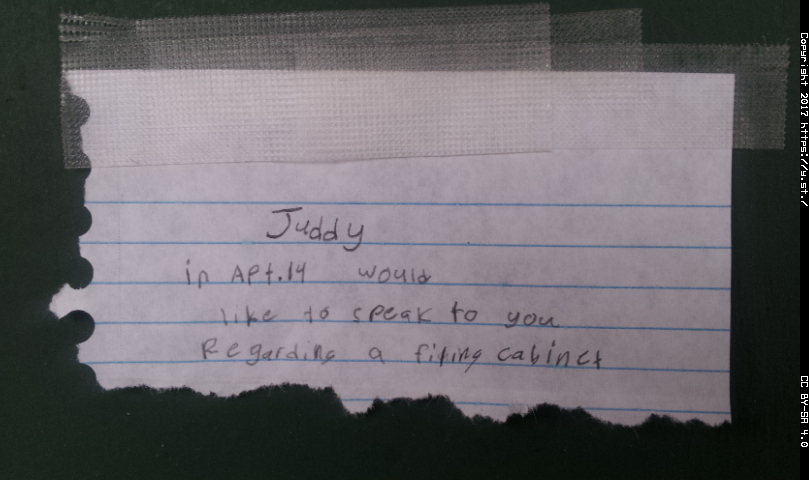 Juddy
in APt.14 would
like to speak to you
Regarding a filing cabinet
Copyright 2017 https://y.st./
CC BY-SA 4.0